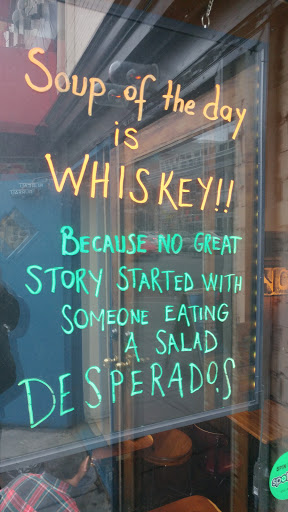 Soup of the day
is
WHISKEY!!
BECAUSE NO GREAT
STORY STARTED WITH
SOMEONE EATING
A SALAD
DESPERADOS